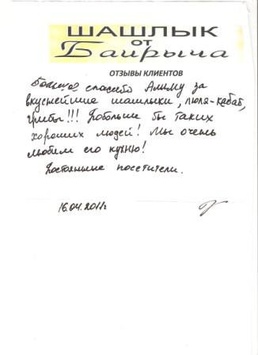 ШАШЛЫК
ОТ
Байрыча
ОТЗЫВЫ КЛИЕНТОВ
Большое спасибо Алиму за
вкуснейшие шашлыки, люля-кебаб,
грибы!!! Побольше бы таких
хороших людей! Мы очень
любим его кухню!
Постоянные посетители.
16.04.2011г.